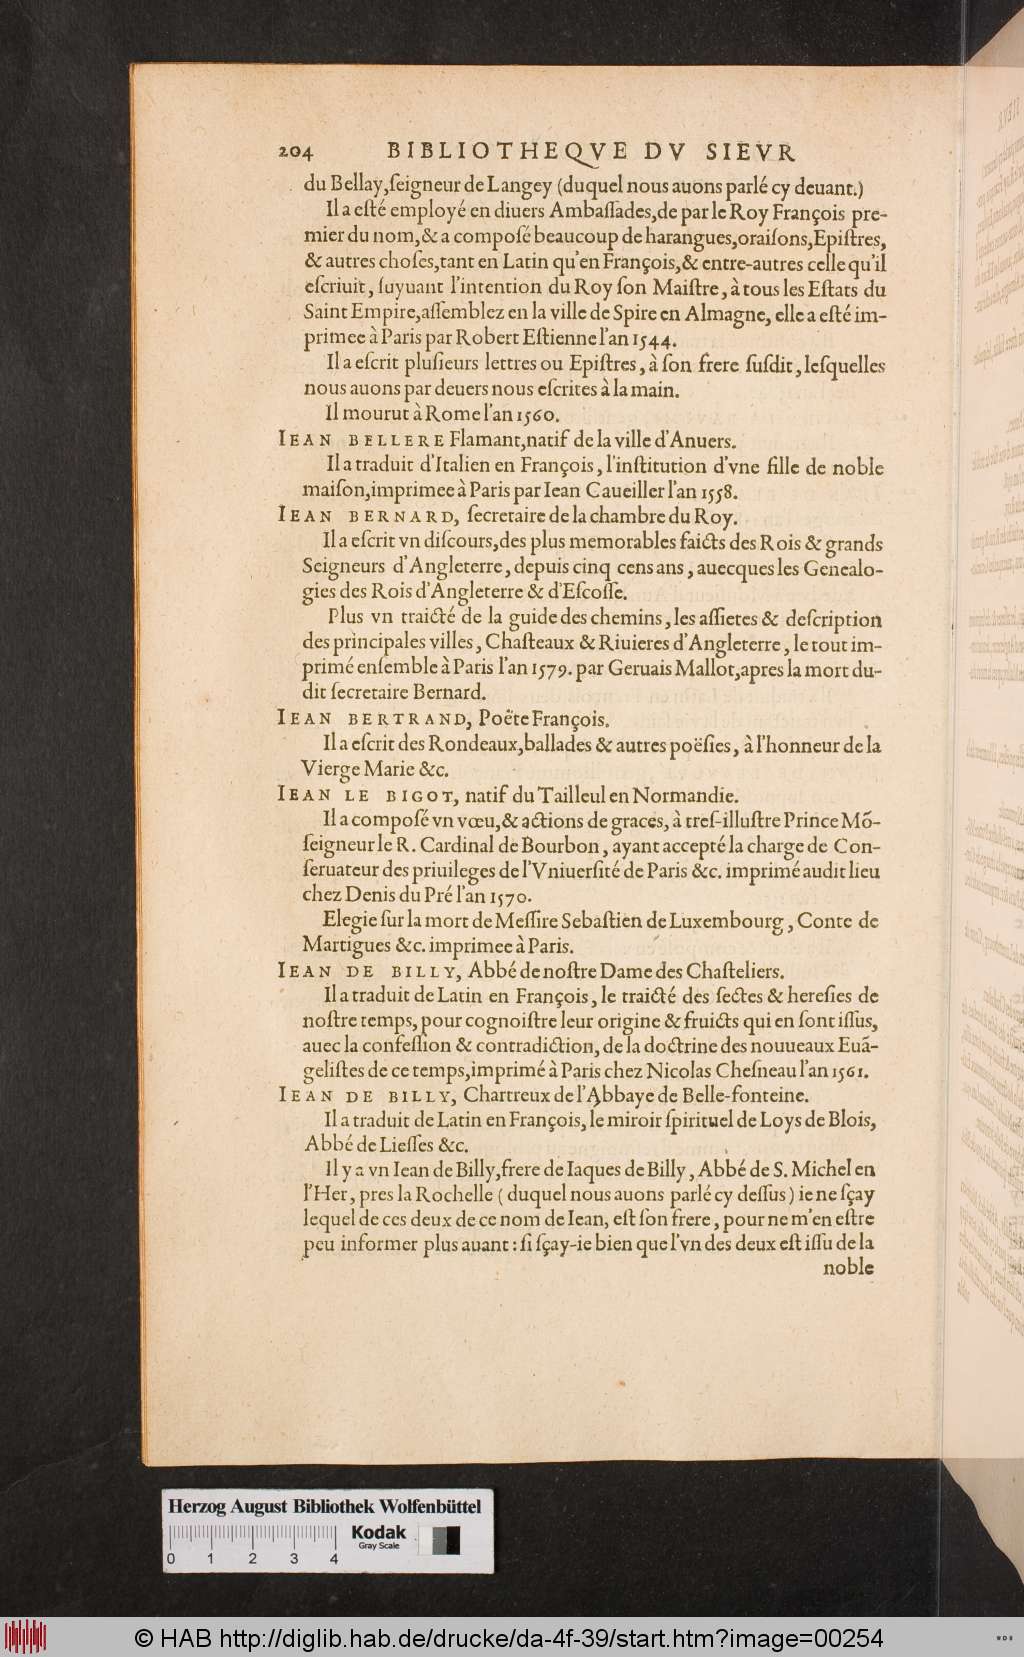 204 BIBLIOTHEQVE DV SIEVR
du Bellay,ſeigneur de Langey (duquel nous auons parlé cy deuant.)
Il a eſté employé en diuers Ambaſſades,de par le Roy François pre-
mier du nom,& a compoſé beaucoup de harangues,oraiſons,Epiſtres,
& autres choſes,tant en Latin qu'en François,& entre-autres celle qu'il
eſcriuit, ſuyuant l'intention du Roy ſon Maiſtre, à tous les Eſtats du
Saint Empire,aſſemblez en la ville de Spire en Almagne, elle a eſté im-
primee à Paris par Robert Eſtienne l'an 1544.
Il a eſcrit pluſieurs lettres ou Epiſtres, à ſon frere ſuſdit, leſquelles
nous auons par deuers nous eſcrites à la main.
Il mourut à Rome l'an 1560.
IEAN BELLERE Flamant,natif de la ville d'Anuers.
Il a traduit d'Italien en François, l'inſtitution d'vne fille de noble
maiſon,imprimee à Paris par Iean Caueiller l'an 1558.
IEAN BERNARD, ſecretaire de la chambre du Roy.
Il a eſcrit vn diſcours,des plus memorables faicts des Rois & grands
Seigneurs d'Angleterre, depuis cinq cens ans, auecques les Genealo-
gies des Rois d'Angleterre & d'Eſcoſſe.
Plus vn traicté de la guide des chemins, les aſſietes & deſcription
des principales villes, Chaſteaux & Riuieres d'Angleterre, le tout im-
primé enſemble à Paris l'an 1579. par Geruais Mallot,apres la mort du-
dit ſecretaire Bernard.
IEAN BERTRAND, Poëte François.
Il a eſcrit des Rondeaux,ballades & autres poëſies, à l'honneur de la
Vierge Marie &c.
IEAN LE BIGOT, natif du Tailleul en Normandie.
Il a compoſé vn vœu,& actions de graces, à treſ-illuſtre Prince Mõ-
ſeigneur le R. Cardinal de Bourbon, ayant accepté la charge de Con-
ſeruateur des priuileges de l'Vniuerſité de Paris &c. imprimé audit lieu
chez Denis du Pré l'an 1570.
Elegie ſur la mort de Meſſire Sebaſtien de Luxembourg, Conte de
Martigues &c. imprimee à Paris.
IEAN DE BILLY, Abbé de noſtre Dame des Chaſteliers.
Il a traduit de Latin en François, le traicté des ſectes & hereſies de
noſtre temps, pour cognoiſtre leur origine & fruicts qui en ſont iſſus,
auec la confeſſion & contradiction, de la doctrine des nouueaux Euã-
geliſtes de ce temps,imprimé à Paris chez Nicolas Cheſneau l'an 1561.
IEAN DE BILLY, Chartreux de l'Abbaye de Belle-fonteine.
Il a traduit de Latin en François, le miroir ſpirituel de Loys de Blois,
Abbé de Lieſſes &c.
Il y a vn Iean de Billy,frere de Iaques de Billy, Abbé de S. Michel en
l'Her, pres la Rochelle (duquel nous auons parlé cy deſſus) ie ne ſçay
lequel de ces deux de ce nom de Iean, eſt ſon frere, pour ne m'en eſtre
peu informer plus auant : ſi ſçay-ie bien que l'vn des deux eſt iſſu de la
noble
Herzog August Bibliothek Wolfenbüttel
Kodak
Gray Scale
0 1 2 3 4
© HAB http://diglib.hab.de/drucke/da-4f-39/start.htm?image=00254